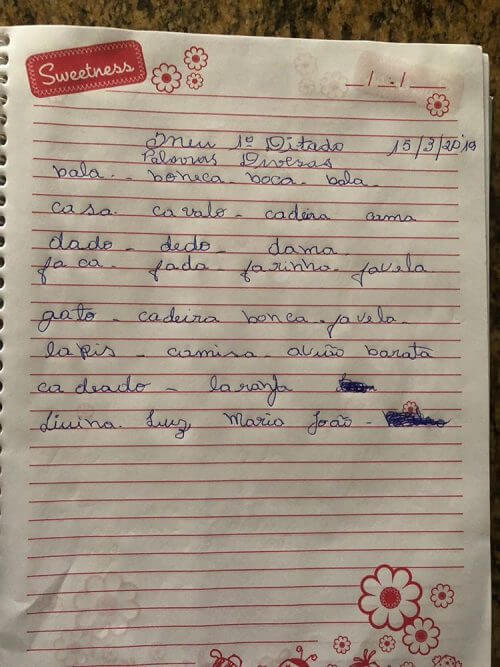 Sweetness
Meu 1º Ditado 15/3/2019
Palavras Diversas
bala - boneca - boca - bola -
casa - cavalo - cadeira cama
dado - dedo - dama
faca - fada - farinha - favela
gato - cadeira bonca - favela -
lapis - camisa - avião barata
cadeado - laranja
Luz Maria João -